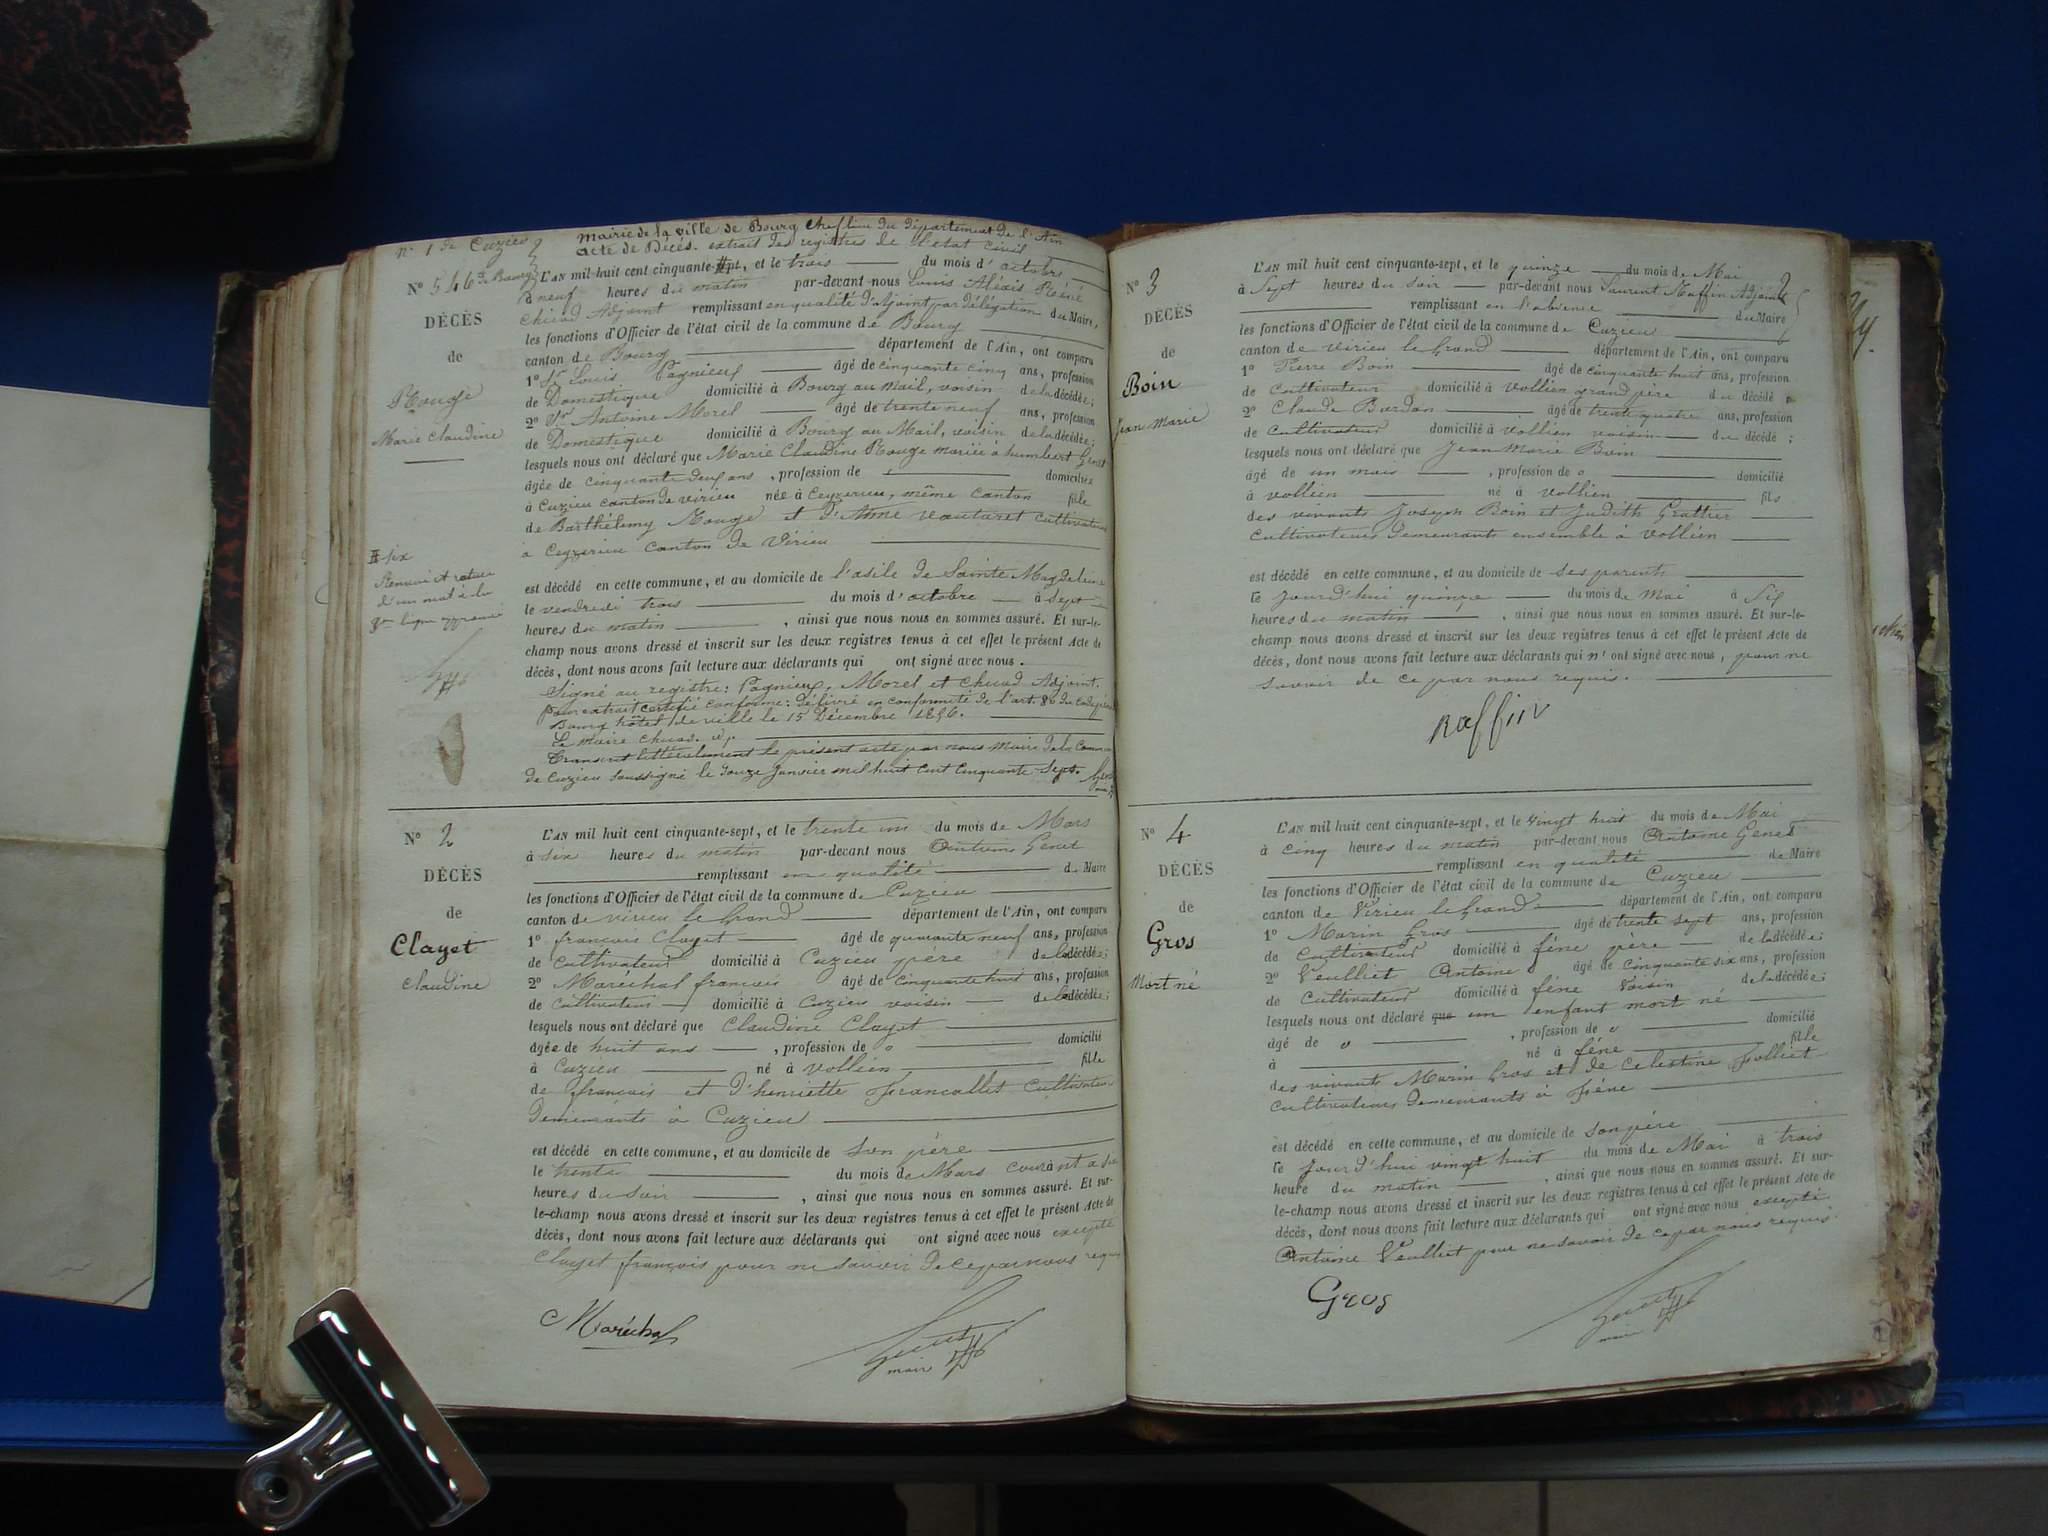 n° 1 de Cuzieu
Mairie de la ville de Bourg chef lieu du département de l'Ain
acte de Décés. extrait des registres de l'état civil
N° 546 de Bourg
DÉCÈS
de
Rouge
Marie Claudine
L'AN mil huit cent cinquante-sept, et le trois du mois d'octobre
à neuf heures du matin par-devant nous Louis Aléxis Réné
Chuad Adjoint remplissant en qualité d'Adjoint par délégation du Maire,
les fonctions d'Officier de l'état civil de la commune de Bourg
canton de Bourg département de l'Ain, ont comparu
1° Sr Louis Pagnieux âgé de cinquante cinq ans, profession
de Domestique domicilié à Bourg au Mail, voisin de la décédée;
2° Sr Antoine Morel âgé de trente neuf ans, profession
de Domestique domicilié à Bourg au Mail, voisin de la décédée;
lesquels nous ont déclaré que Marie Claudine Rouge mariée à humbert Genet
âgée de cinquante deux ans, profession de domiciliée
à Cuzieu canton de virieu née à Ceyzerieu, même canton fille
de Barthélemy Rouge et d'Anne Vauturet cultivateurs
a Ceyzerieu canton de Virieu
est décédé en cette commune, et au domicile de l'asile de Sainte Magdeleine
le vendredi trois du mois d'octobre à sept
heures du matin, ainsi que nous nous en sommes assuré. Et sur-le-
champ nous avons dressé et inscrit sur les deux registres tenus à cet effet le présent Acte de
décès, dont nous avons fait lecture aux déclarants qui ont signé avec nous.
Signé au registre: Pagnieux, Morel et Chuad Adjoint.
Pour extrait certifié conforme: délivré en conformité de l'art. 80 du Code
Bourg hôtel de ville le 15 Décembre 1856.
Le maire Chuad. adj.
Transcrit littéralement le présent acte par nous Maire de la Commune
de Cuzieu soussigné le douze Janvier mil huit cent cinquante sept.
six
Renvoi et rature
d'un mot à la
ligne approuvé
N° 2
DÉCÈS
de
Clayet
Claudine
L'AN mil huit cent cinquante-sept, et le trente un du mois de Mars
à six heures du matin par-devant nous Antoine Genet
remplissant en qualité de Maire
les fonctions d'Officier de l'état civil de la commune de Cuzieu
canton de virieu le Grand département de l'Ain, ont comparu
1° françois Clayet âgé de quarante neuf ans, profession
de cultivateur domicilié à Cuzieu père de la décédée;
2° Maréchal françois âgé de cinquante huit ans, profession
de cultivateur domicilié à Cuzieu voisin de la décédée;
lesquels nous ont déclaré que Claudine Clayet
âgée de huit ans, profession de o domicilié
à Cuzieu né à vollien fille
de françois et d'henriette francallet cultivateurs
demeurants à Cuzieu
est décédé en cette commune, et au domicile de son père
le trente du mois de Mars courant à six
heures du soir, ainsi que nous nous en sommes assuré. Et sur-
le-champ nous avons dressé et inscrit sur les deux registres tenus à cet effet le présent Acte de
décès, dont nous avons fait lecture aux déclarants qui ont signé avec nous excepté
Clayet françois pour ne savoir de ce par nous requis
Maréchal
Genet
maire
N° 3
DÉCÈS
de
Boin
Jean Marie
L'AN mil huit cent cinquante-sept, et le quinze du mois de Mai
à Sept heures du soir par-devant nous Laurent Raffin Adjoint
remplissant en l'absence du Maire
les fonctions d'Officier de l'état civil de la commune de Cuzieu
canton de virieu le Grand département de l'Ain, ont comparu
1° Pierre Boin âgé de cinquante huit ans, profession
de cultivateur domicilié à vollien grand père du décédé
2° Claude Bardon âgé de trente quatre ans, profession
de cultivateur domicilié à vollien voisin du décédé;
lesquels nous ont déclaré que Jean Marie Boin
âgé de un mois, profession de o domicilié
à vollien né à vollien fils
des vivants Joseph Boin et Judith Grattier
cultivateurs demeurants ensemble à vollien
est décédé en cette commune, et au domicile de ses parents
le Jourd'hui quinze du mois de mai à six
heures du matin, ainsi que nous nous en sommes assuré. Et sur-le-
champ nous avons dressé et inscrit sur les deux registres tenus à cet effet le présent Acte de
décès, dont nous avons fait lecture aux déclarants qui n'ont signé avec nous, pour ne
savoir de ce par nous requis.
Raffin
N° 4
DÉCÈS
de
Gros
Mort né
L'AN mil huit cent cinquante-sept, et le vingt huit du mois de Mai
à cinq heures du matin par-devant nous Antoine Genet
remplissant en qualité de Maire
les fonctions d'Officier de l'état civil de la commune de Cuzieu
canton de Virieu le Grand département de l'Ain, ont comparu
1° Marin Gros âgé de trente sept ans, profession
de cultivateur domicilié à féne père de la décédée;
2° Veulliet Antoine âgé de cinquante six ans, profession
de cultivateur domicilié à féne Voisin de la décédée;
lesquels nous ont déclaré que un enfant mort né
âgé de o, profession de o domicilié
à né à féne fille
des vivants Marin Gros et de Celestine Jolliet
cultivateurs demeurants à féne
est décédé en cette commune, et au domicile de son père
le Jour d'hui vingt huit du mois de Mai à trois
heure du matin, ainsi que nous nous en sommes assuré. Et sur-
le-champ nous avons dressé et inscrit sur les deux registres tenus à cet effet le présent Acte de
décès, dont nous avons fait lecture aux déclarants qui ont signé avec nous excepté
Antoine Veulliet pour ne savoir de ce par nous requis
Gros
Genet
maire